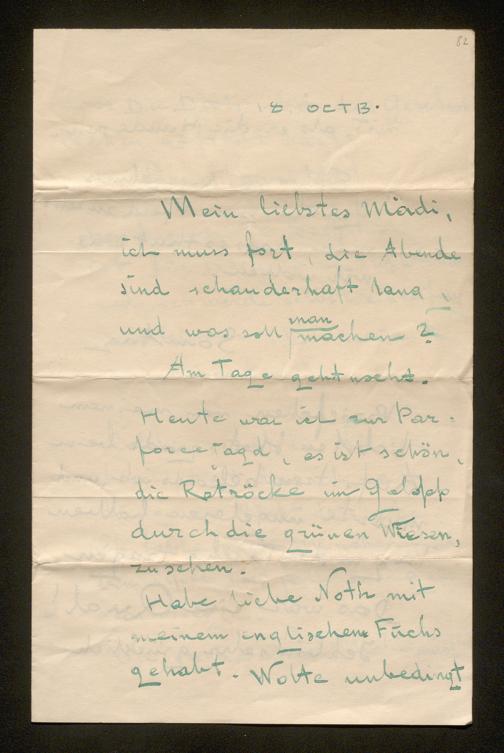 82
18 OCTB.
Mein liebstes Mädi,
ich muss fort, die Abende
sind schauderhaft lang,
und was soll man machen?
Am Tage geht noch.
Heute war ich zur Par-
forcejagd, es ist schön,
die Rotröcke im Galopp
durch die grünen Wiesen,
zu sehen.
Habe liebe Noth mit
meinem englischen Fuchs
gehabt. Wolte unbedingt